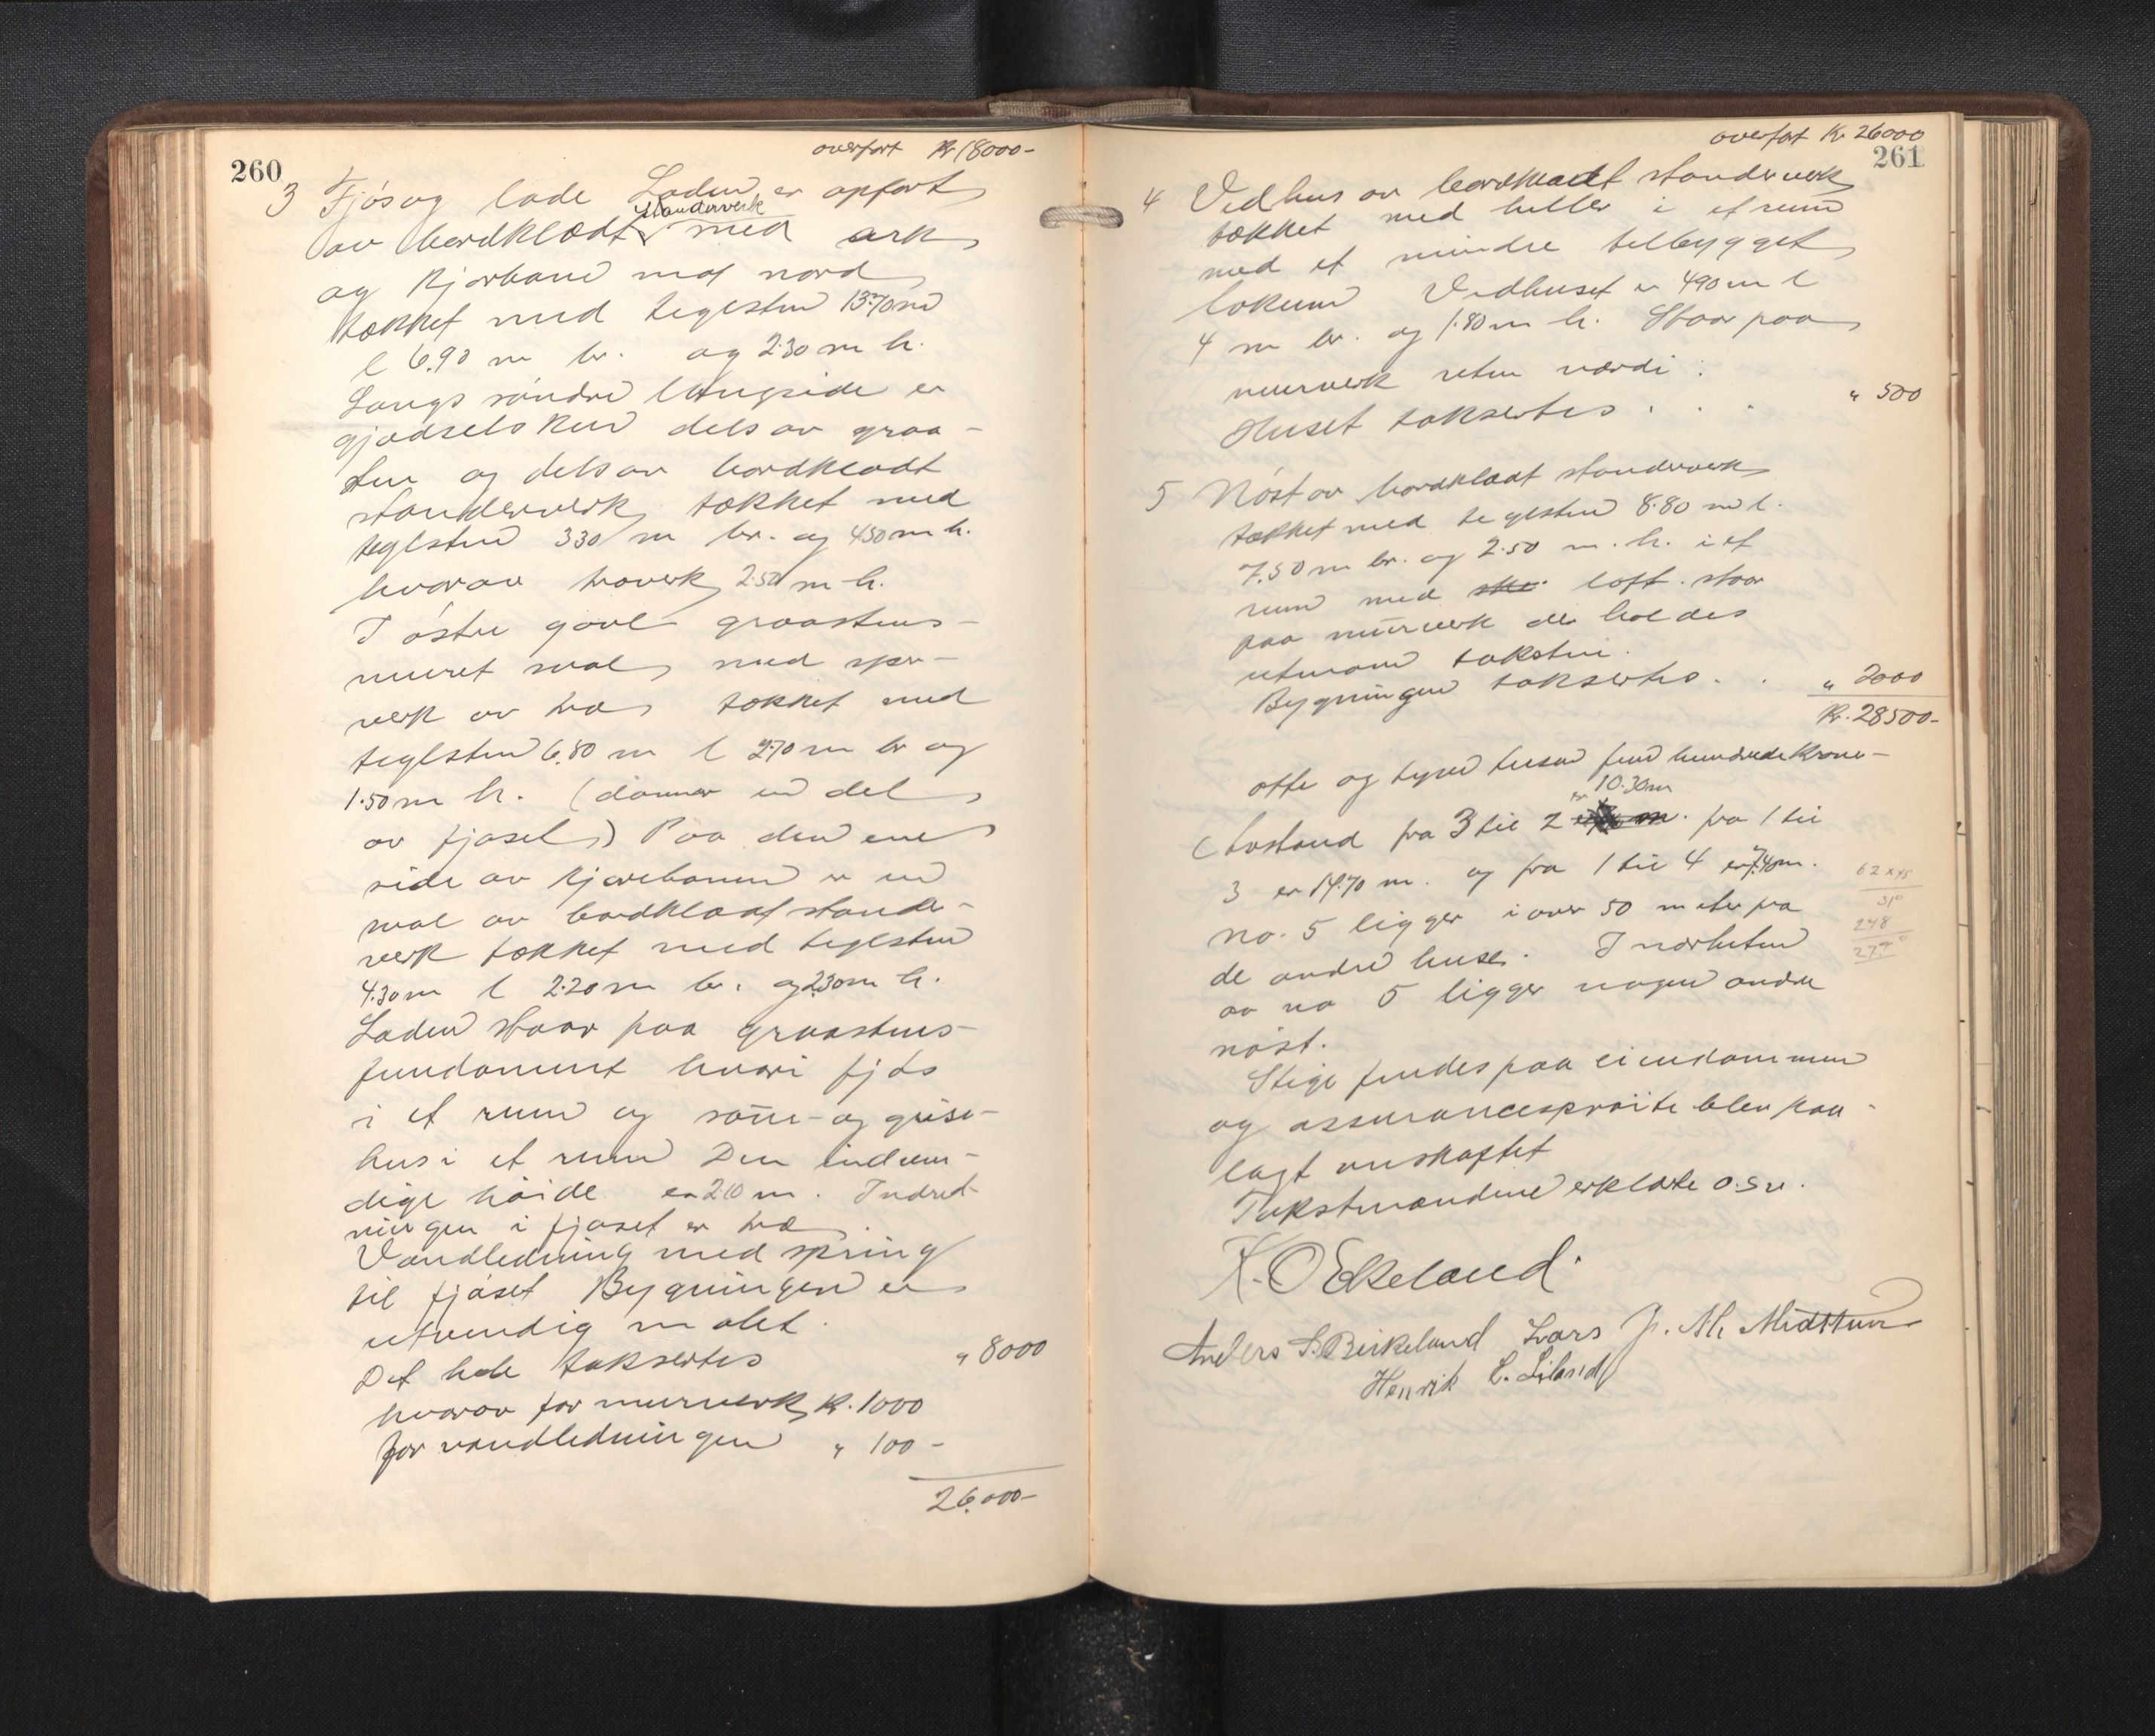 260
overført Kr 18000-
3 Fjøs og lade Laden er opført
standerverk
av bordklædt med ark
og kjørbane mot nord
tækket med teglsten 13.70 m
l 6.90 m br. og 2.30 m h.
Langs søndre langside er
gjødselskur dels av graa-
sten og dels av bordklædt
standerverk tækket med
teglsten 330 m br. og 450 m h.
hvorav træverk 2.50 m h.
I østre gavl graastens-
muret sval med sper-
verk av træ tækket med
teglsten 6.80 m l 2.70 m br og
1.50 m h. (danner en del
av fjøset) Paa den ene
side av kjørebanen er en
sval av bordklædt stander-
verk tækket med teglsten
4.30 m l 2.20 m br. og 2.30 m h.
Laden staar paa graastens-
fundament hvori fjøs
i et rum og saue- og grise-
hus i et rum Den indven-
dige høide er 2.10 m. Indred-
ningen i fjøset er træ.
Vandledning med spring
til fjøset Bygningen er
utvendig malet.
Det hele taksertes " 8000
hvorav for murverk Kr. 1000
for vandledningen " 100-
26.000-
overført Kr 26000
261
4 Vedhus av bordklædt standerverk
tækket med heller i et rum
med et mindre tilbygget
lokum Vedhuset er 490 m l
4 m br. og 1.80 m h. Staar paa
murverk uten værdi:
Huset taksertes . . . " 500
5 Nøst av bordklædt standerverk
tækket med teglsten 8.80 m l.
7.50 m br. og 2.50 m. h. i et
rum med loft. staar
paa murverk der holdes
utenom taksten.
Bygningen taksertes . . " 2000
Kr. 28500-
otte og tyve tusen fem hundrede kroner-
er 10.30 m
Avstand fra 3 til 2 fra 1 til
3 er 14.70 m. og fra 1 til 4 er 7.40 m.
62 x 45
310
248
279 0
no. 5 ligger i over 50 meter fra
de andre huse. I nærheten
av no 5 ligger nogen andre
nøst.
Stige findes paa eiendommen
og assurancesprøite blev paa-
lagt anskaffet
Takstmændene erklærte o.s.v.
K. O Ekeland.
Anders S. Birkeland Lars J. M. Midttun
Henrik L. Liland